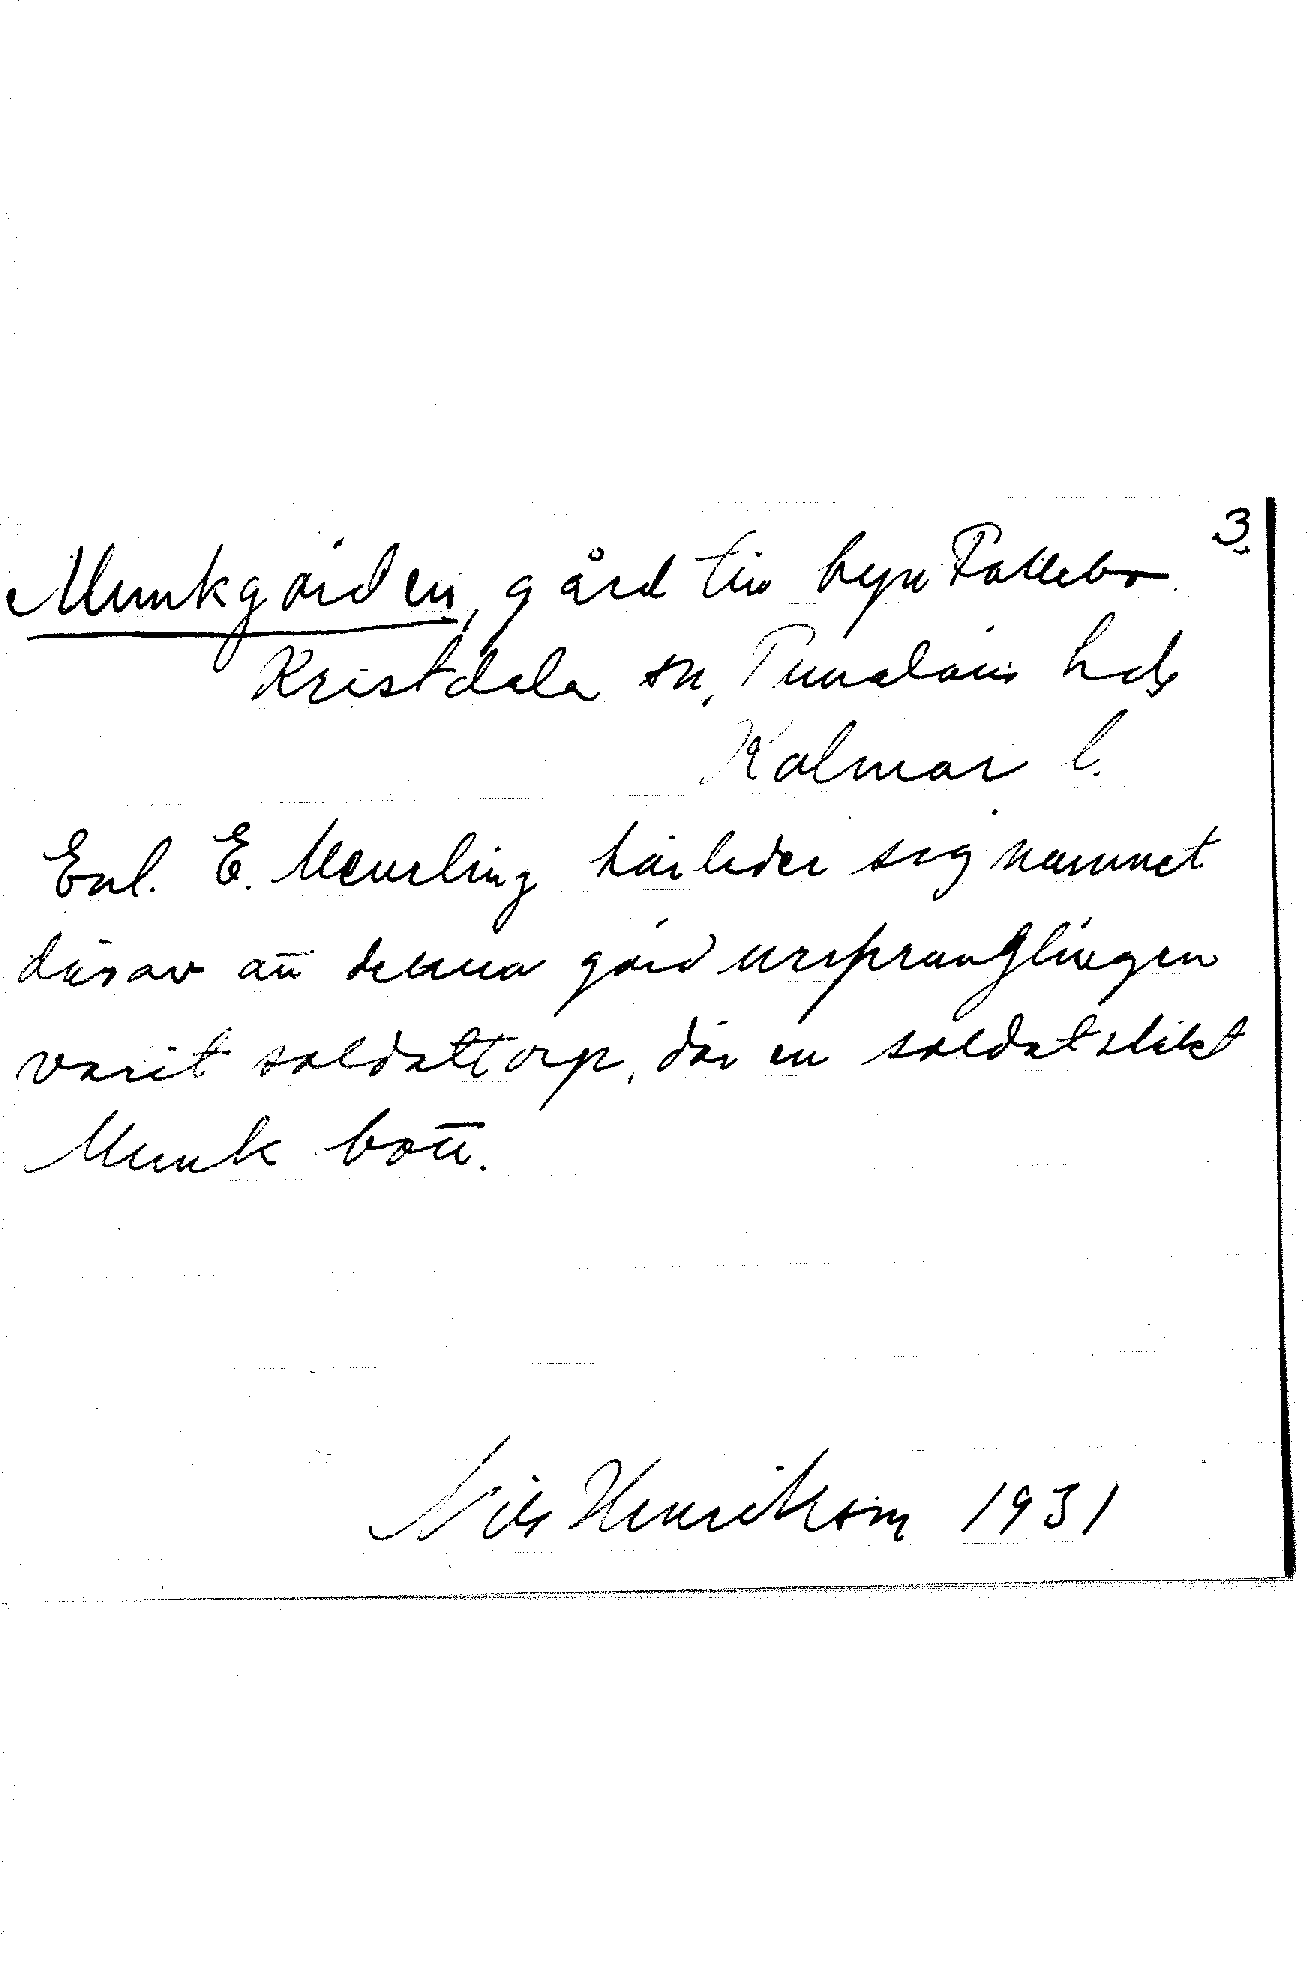 3.
Munkgården, gård till byn Fallebo
Kristdala sn, Tunaläns hds
Kalmar l.
Enl. E. Meurling härleder sig namnet
därav att denna gård ursprungligen
varit soldattorp, där en soldatsläkt
Munk bott.
Nils Henrikson 1931